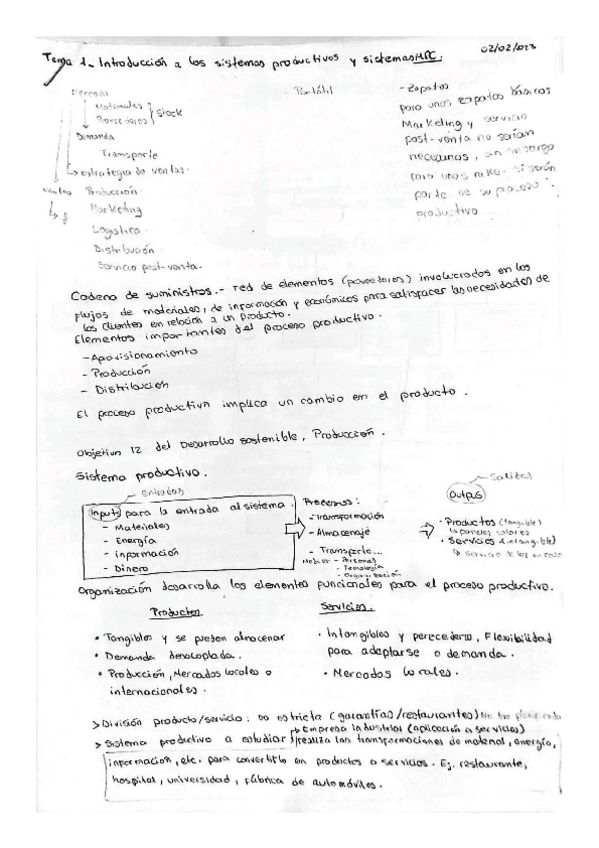 02/02/2023
Tema 1.- Introducción a los sistemas productivos y sistemas MPC.
Mercado
Materiales
Proveedores
Stock
Demanda
Transporte
estrategia de ventas.
Ventas
Producción.
$
Marketing
Logística.
Distribución.
Servicio post-venta.
- Portátil
- Zapatos
para unos zapatos básicos
Marketing y servicio
post-venta no serían
necesarios, sin embargo
para unos nike sí serán
parte de su proceso
productivo
Cadena de suministros.- red de elementos (proveedores) involucrados en los
flujos de materiales, de información y económicos para satisfacer las necesidades de
los clientes en relación a un producto.
Elementos importantes del proceso productivo.
- Aprovisionamiento
- Producción
- Distribución
El proceso productivo implica un cambio en el producto.
Objetivo 12 del Desarrollo sostenible, Producción.
Sistema productivo.
Entradas
Inputs para la entrada al sistema.
- Materiales
- Energía
- información
- Dinero
Procesos:
- Transformación
- Almacenaje
- Transporte...
- Personal
- Tecnología
- Organización
Salidas
Outputs
• Productos (tangible)
↳ paneles solares
• Servicios (intangible)
↳ Servicio de luz en casa
Organización desarrolla los elementos funcionales para el proceso productivo.
Productos
• Tangibles y se pueden almacenar
• Demanda desacoplada.
• Producción, Mercados locales o
internacionales.
Servicios.
• Intangibles y perecederos, Flexibilidad
para adaptarse a demanda.
• Mercados locales.
> División producto/servicio: no estricta (garantías/restaurantes)
Empresa Industrial (aplicación a servicios)
> Sistema productivo a estudiar realiza las transformaciones de material, energía,
información, etc. para convertirlo en productos o servicios. Ej. restaurante,
hospital, universidad, fábrica de automóviles.